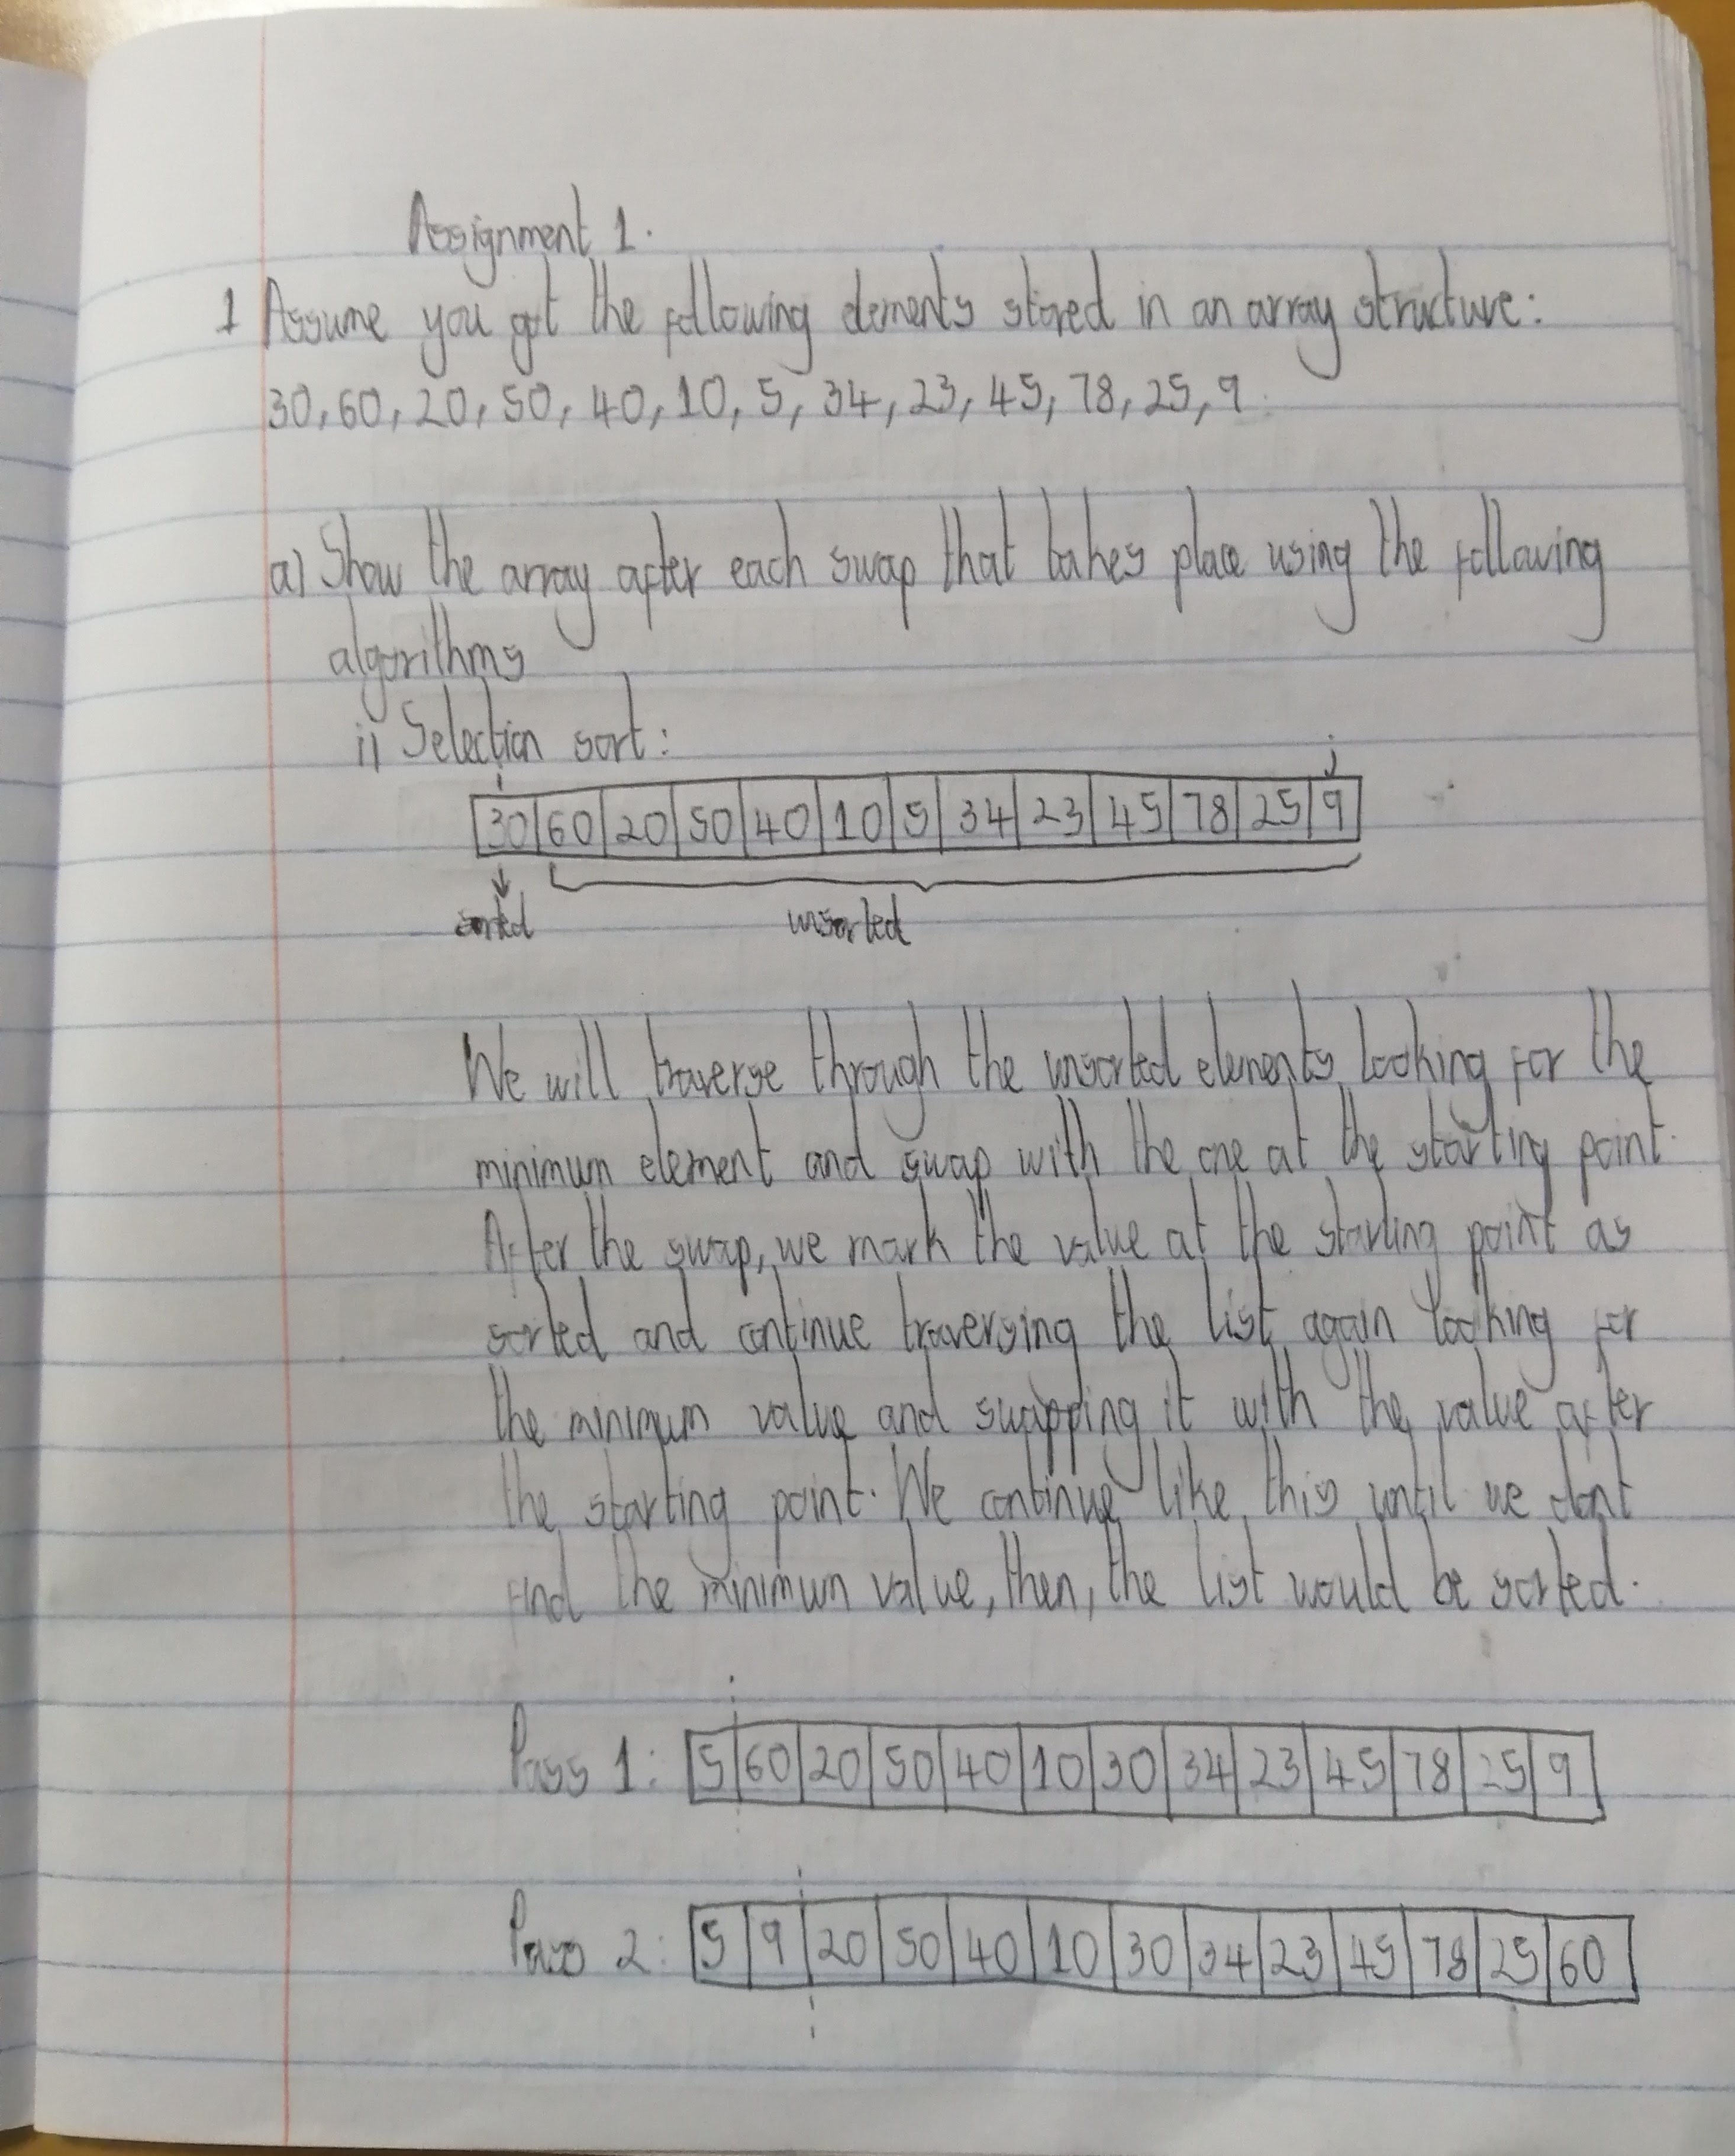 Assignment 1.
1 Assume you got the following elements stored in an array structure:
30, 60, 20, 50, 40, 10, 5, 34, 23, 45, 78, 25, 9.
a) Show the array after each swap that takes place using the following
algorithms
i) Selection sort:
i j
30 60 20 50 40 10 5 34 23 45 78 25 9
sorted unsorted
We will traverse through the unsorted elements looking for the
minimum element and swap with the one at the starting point.
After the swap, we mark the value at the starting point as
sorted and continue traversing the list again looking for
the minimum value and swapping it with the value after
the starting point. We continue like this until we dont
find the minimum value, then, the list would be sorted.
Pass 1: 5 60 20 50 40 10 30 34 23 45 78 25 9
Pass 2: 5 9 20 50 40 10 30 34 23 45 78 25 60